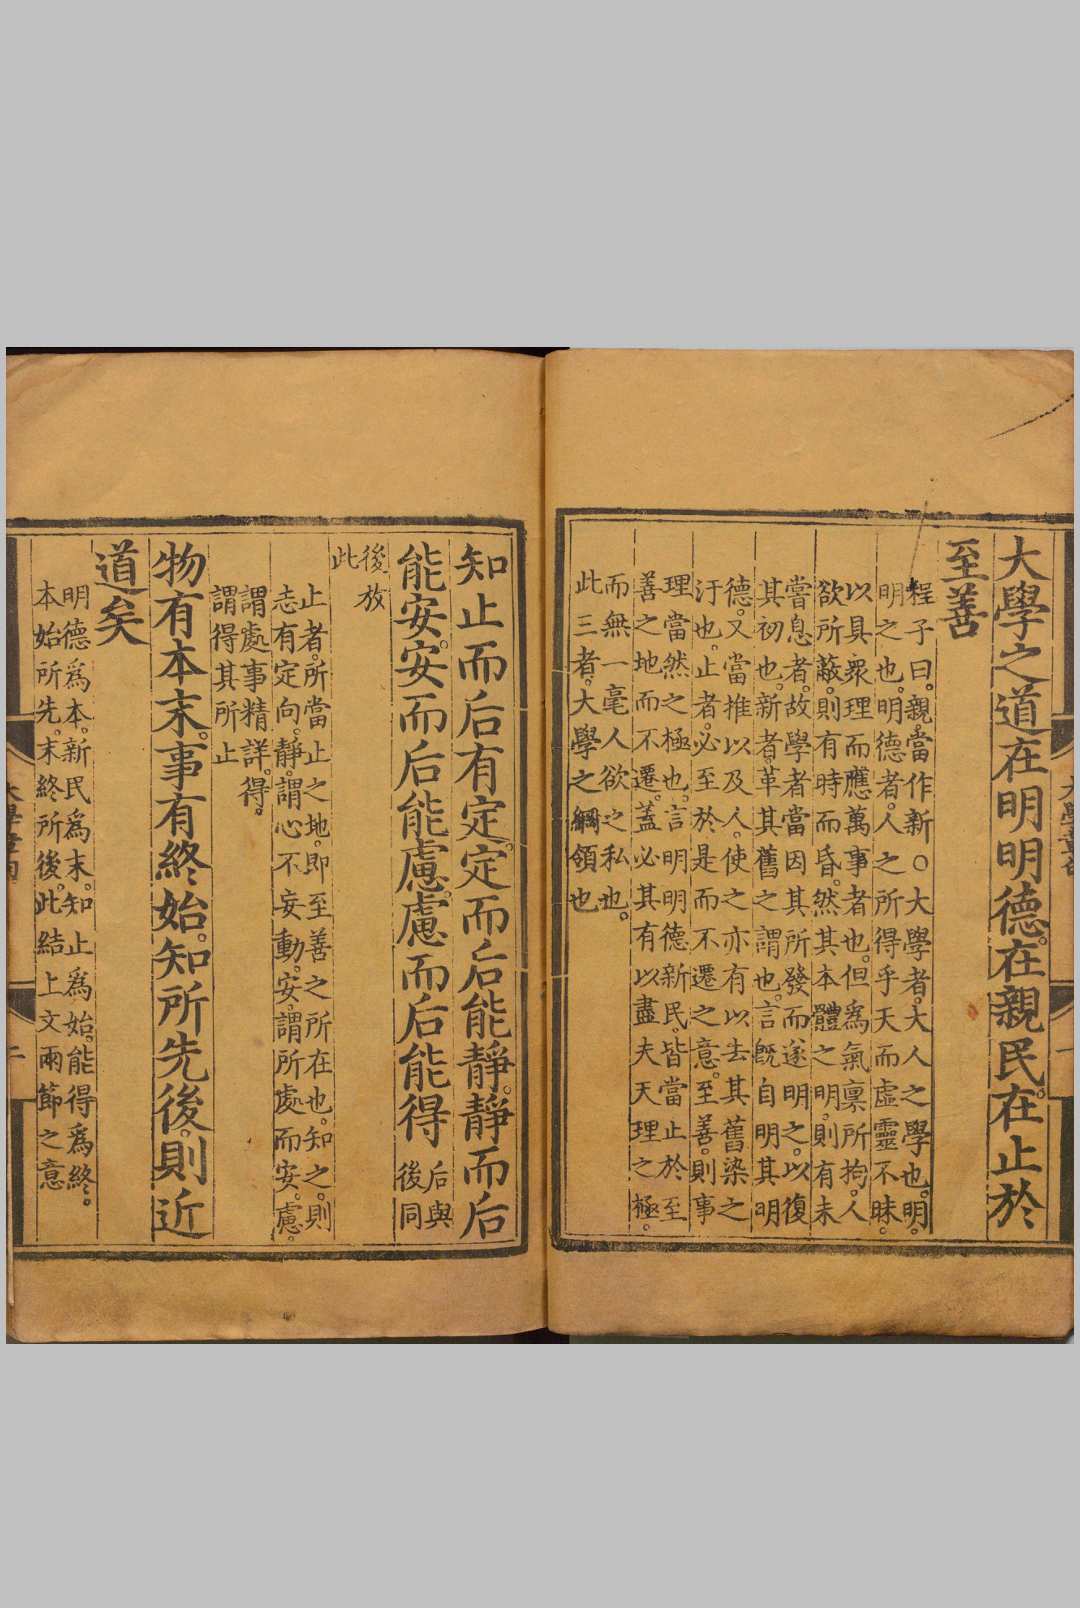 大學之道在明明德。在親民。在止於
至善
程子曰。親當作新○大學者。大人之學也。明。
明之也。明德者。人之所得乎天而虛靈不昧。
以具衆理而應萬事者也。但爲氣禀所拘。人
欲所蔽。則有時而昏。然其本體之明。則有未
嘗息者。故學者當因其所發而遂明之。以復
其初也。新者。革其舊之謂也。言旣自明其明
德。又當推以及人。使之亦有以去其舊染之
汙也。止者。必至於是而不遷之意。至善。則事
理當然之極也。言明明德新民。皆當止於至
善之地而不遷。蓋必其有以盡夫天理之極。
而無一毫人欲之私也。
此三者。大學之綱領也
知止而后有定。定而后能靜。靜而后
能安。安而后能慮。慮而后能得
后與
後同
後放
此
止者。所當止之地。即至善之所在也。知之。則
志有定向。靜。謂心不妄動。安。謂所處而安。慮。
謂處事精詳。得。
謂得其所止
物有本末。事有終始。知所先後。則近
道矣
明德爲本。新民爲末。知止爲始。能得爲終。
本始所先。末終所後。此結上文兩節之意